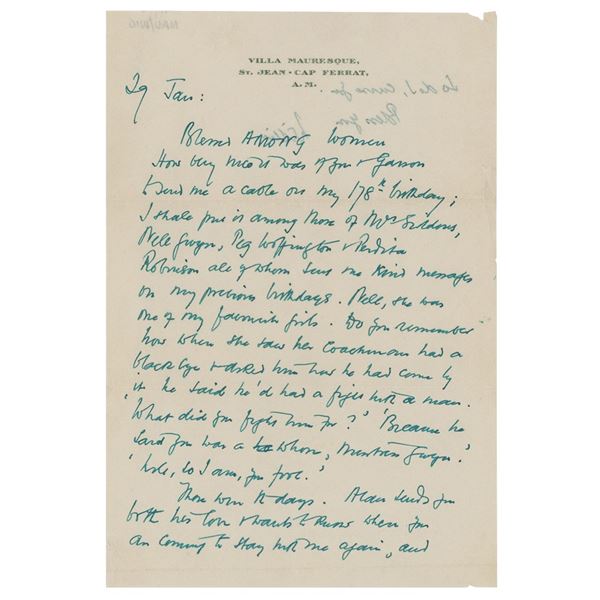 VILLA MAURESQUE,
ST. JEAN - CAP FERRAT,
A. M.
29 Jan:
Blessed AMONG Women
How very nice it was of you & Garson
to send me a cable on my 178th birthday;
I shall put it among those of Mrs Siddons,
Nell Gwyn, Peg Woffington & Perdita
Robinson all of whom sent me kind messages
on my previous birthdays. Nell, she was
one of my favourite girls. Do you remember
how when she saw her coachman had a
black eye & asked him how he had come by
it he said he'd had a fight with a man.
'What did you fight him for?' 'Because he
said you was a whore, Mistress Gwyn.'
'Well, so I am, you fool.'
Those were the days. Alan sends you
both his love & wants to know when you
are coming to stay with me again, and